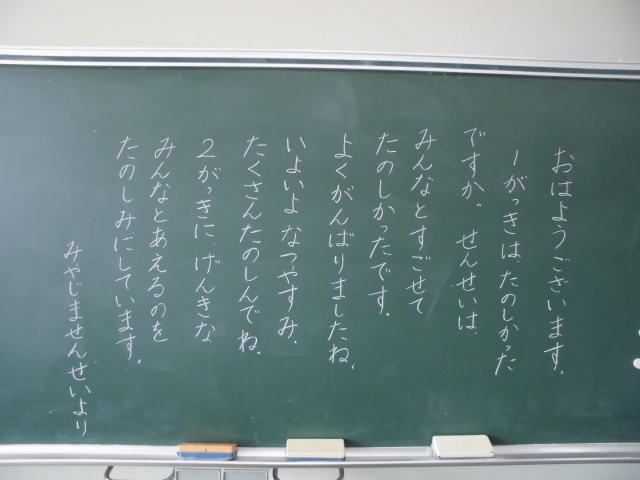 おはようございます。
1がっきは、たのしかった
ですか。せんせいは、
みんなとすごせて
たのしかったです。
よくがんばりましたね。
いよいよなつやすみ。
たくさんたのしんでね。
2がっきに、げんきな
みんなとあえるのを
たのしみにしています。
みやじませんせいより